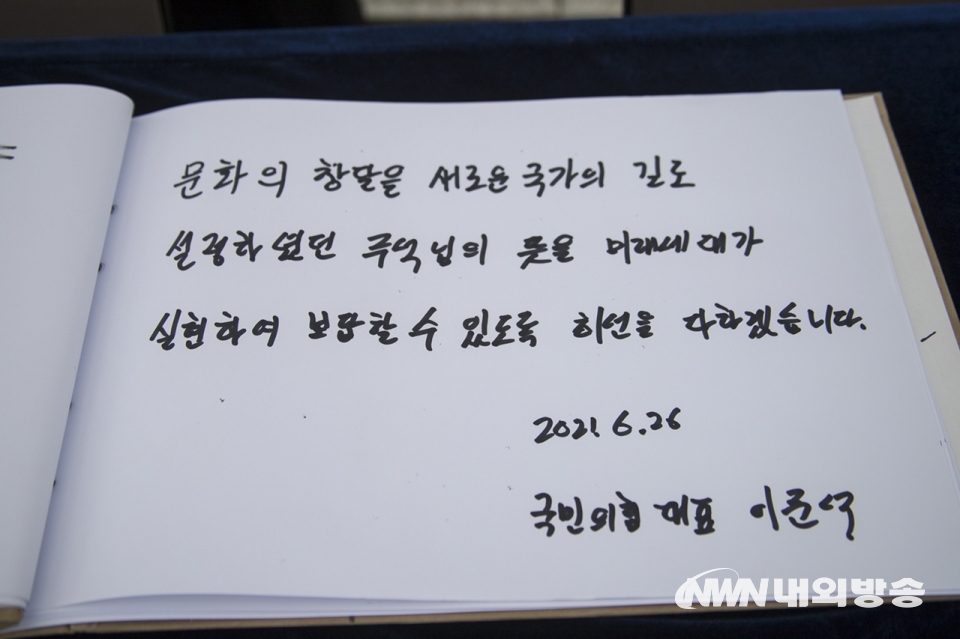 문화의 창달을 새로운 국가의 길로
설정하셨던 주석님의 뜻을 미래세대가
실현하여 보답할 수 있도록 최선을 다하겠습니다.
2021. 6. 26
국민의힘 대표 이준석
NWN내외방송